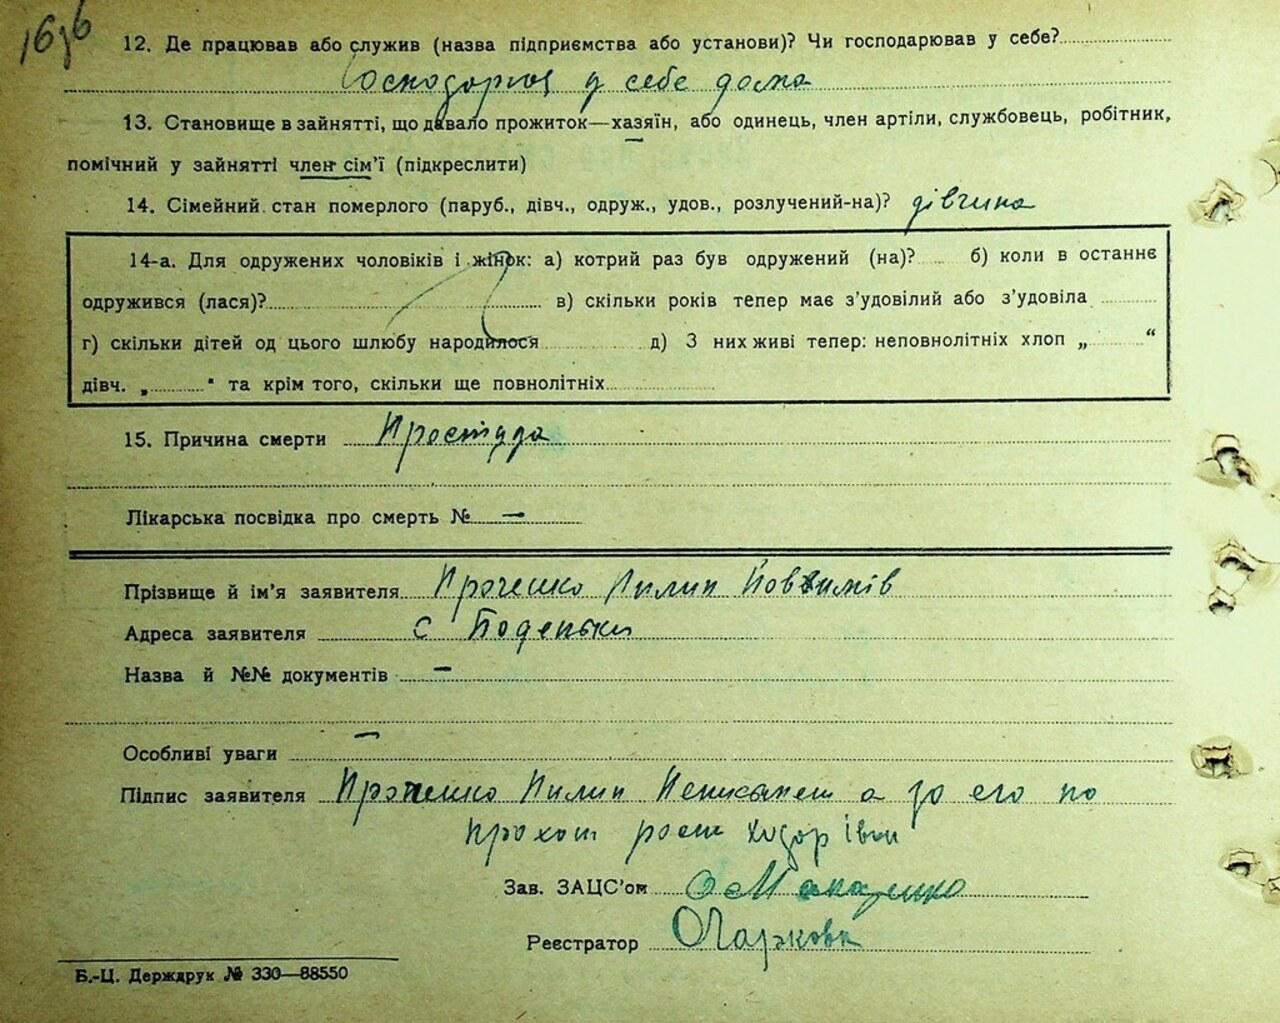 16зв
12. Де працював або служив (назва підприємства або установи)? Чи господарював у себе?
Господарює у себе дома
13. Становище в зайнятті, що давало прожиток—хазяїн, або одинець, член артіли, службовець, робітник,
помічний у зайнятті член сім’ї (підкреслити)
14. Сімейний стан померлого (паруб., дівч., одруж., удов., розлучений-на)? дівчина
14-а. Для одружених чоловіків і жінок: а) котрий раз був одружений (на)? б) коли в останнє
одружився (лася)? в) скільки років тепер має з’удовілий або з’удовіла
г) скільки дітей од цього шлюбу народилося д) З них живі тепер: неповнолітніх хлоп „ “
дівч. „ “ та крім того, скільки ще повнолітніх
15. Причина смерти Простуда
Лікарська посвідка про смерть № —
Прізвище й ім’я заявителя Пилип
Адреса заявителя с
Назва й №№ документів —
Особливі уваги —
Підпис заявителя Пилип а за его по
Зав. ЗАЦС’ом
Реєстратор
Б.-Ц. Держдрук № 330—88550